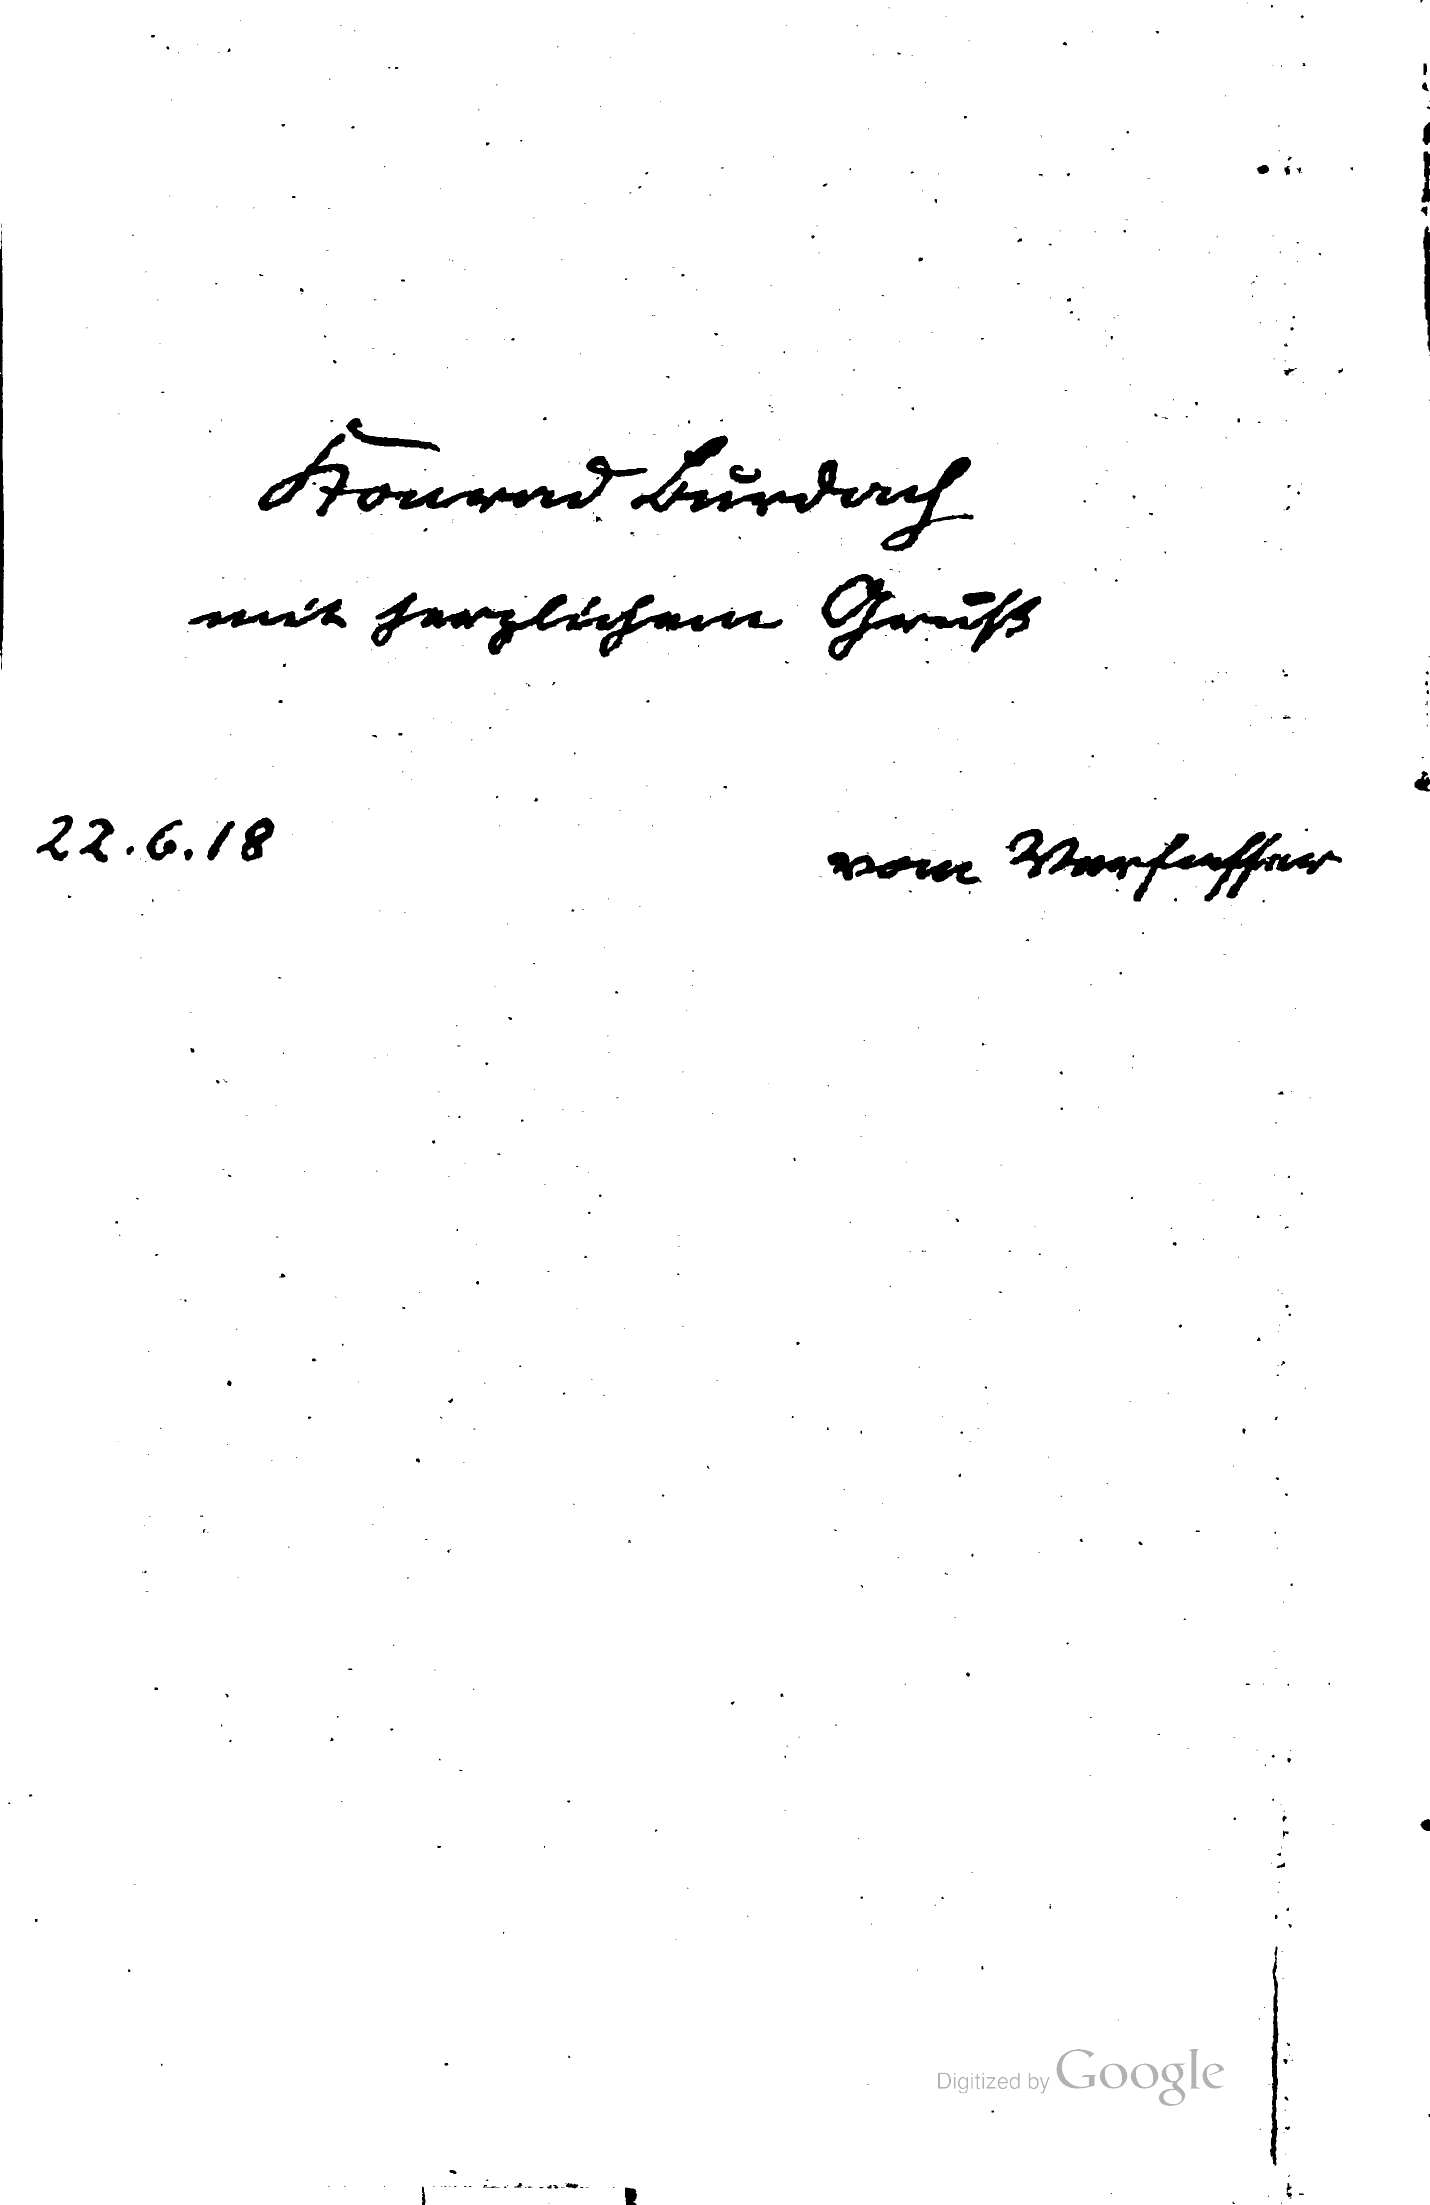 Konrad Burdach
mit herzlichem Gruß
22.6.18
vom Verfasser
Digitized by Google